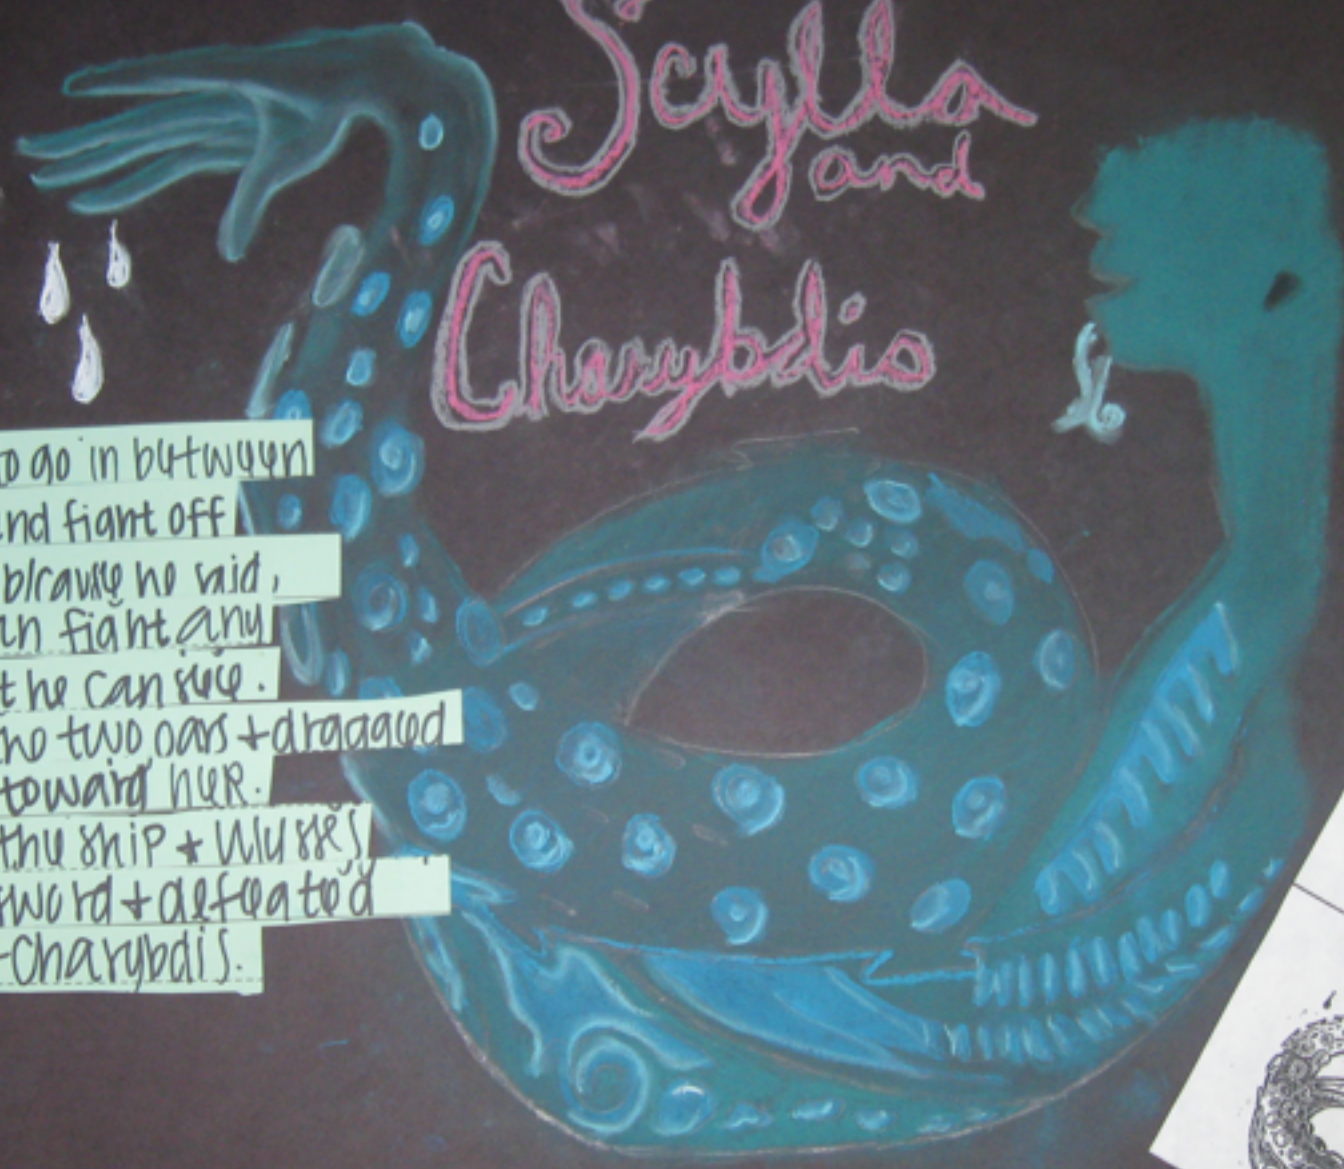 Scylla
and
Charybdis
to go in between
and fight off
because he said,
an fight any
t he can see.
he two oars + dragged
toward her.
the ship + Ulysses
sword + defeated
-Charybdis.